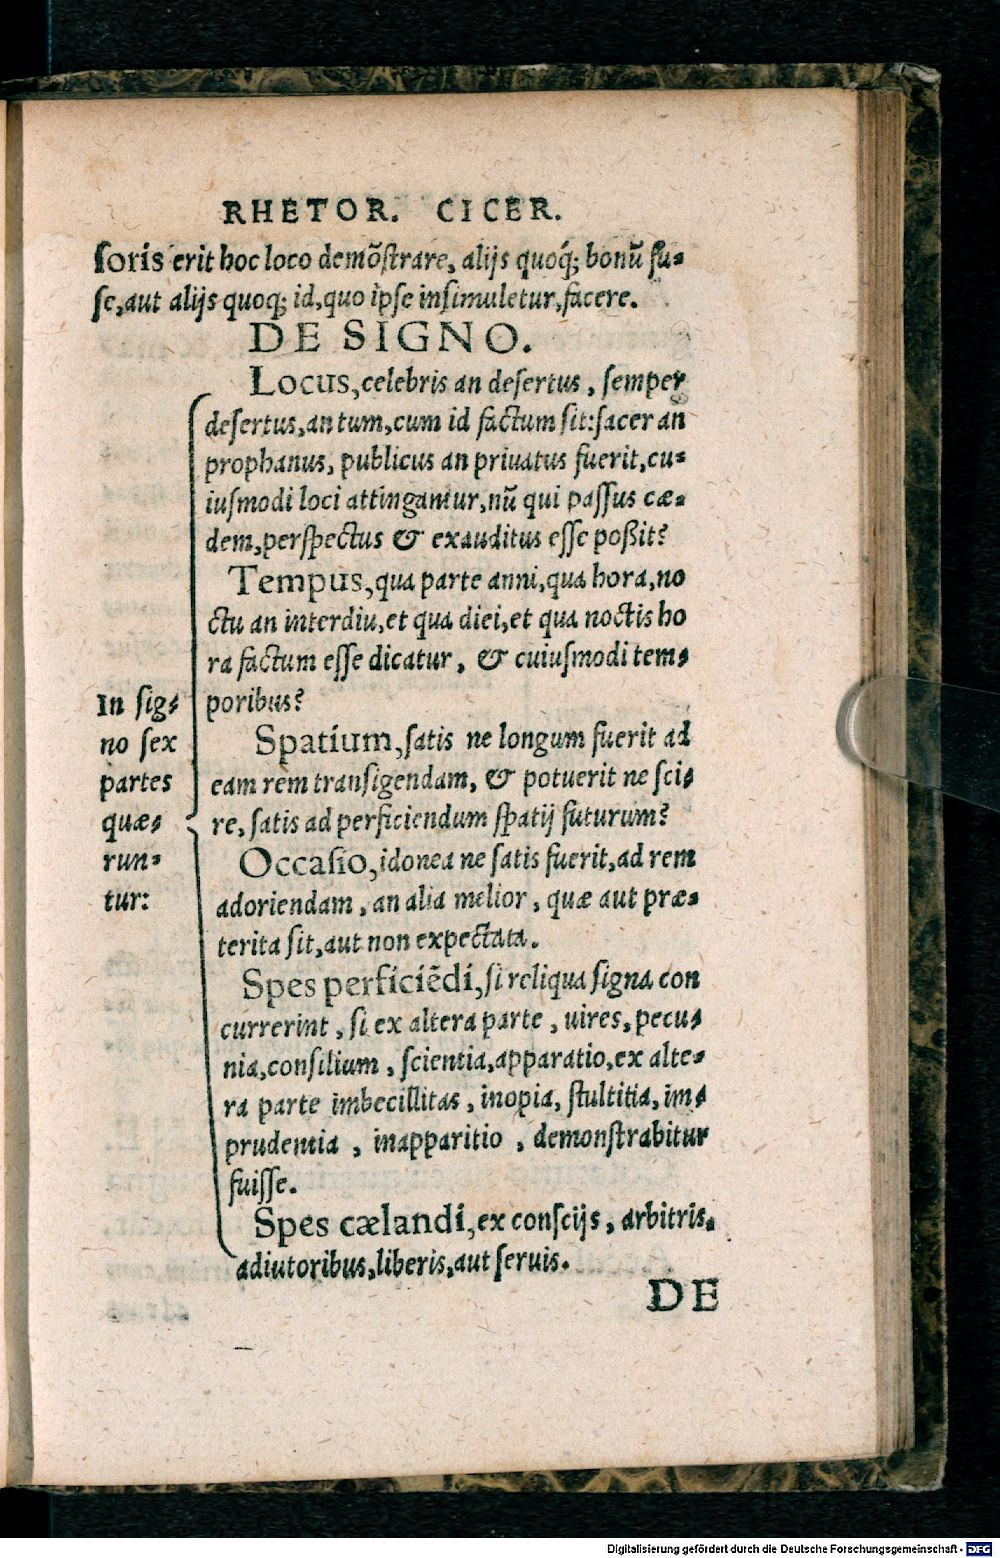 RHETOR. CICER.
soris erit hoc loco demõstrare, alijs quoq́; bonũ fu-
se, aut alijs quoq; id, quo ipse insimuletur, facere.
DE SIGNO.
Locus, celebris an desertus, semper
desertus, an tum, cum id factum sit: sacer an
prophanus, publicus an priuatus fuerit, cu-
iusmodi loci attingantur, nũ qui passus cæ-
dem, perspectus & exauditus esse poßit?
Tempus, qua parte anni, qua hora, no
ctu an interdiu, et qua diei, et qua noctis ho
ra factum esse dicatur, & cuiusmodi tem-
poribus?
In sig-
no sex
partes
quæ-
run-
tur:
Spatium, satis ne longum fuerit ad
eam rem transigendam, & potuerit ne sci-
re, satis ad perficiendum spatij futurum?
Occasio, idonea ne satis fuerit, ad rem
adoriendam, an alia melior, quæ aut præ-
terita sit, aut non expectata.
Spes perficiẽdi, si reliqua signa con
currerint, si ex altera parte, uires, pecu-
nia, consilium, scientia, apparatio, ex alte-
ra parte imbecillitas, inopia, stultitia, im-
prudentia, inapparitio, demonstrabitur
fuisse.
Spes cælandi, ex conscijs, arbitris,
adiutoribus, liberis, aut seruis.
DE
Digitalisierung gefördert durch die Deutsche Forschungsgemeinschaft - DFG